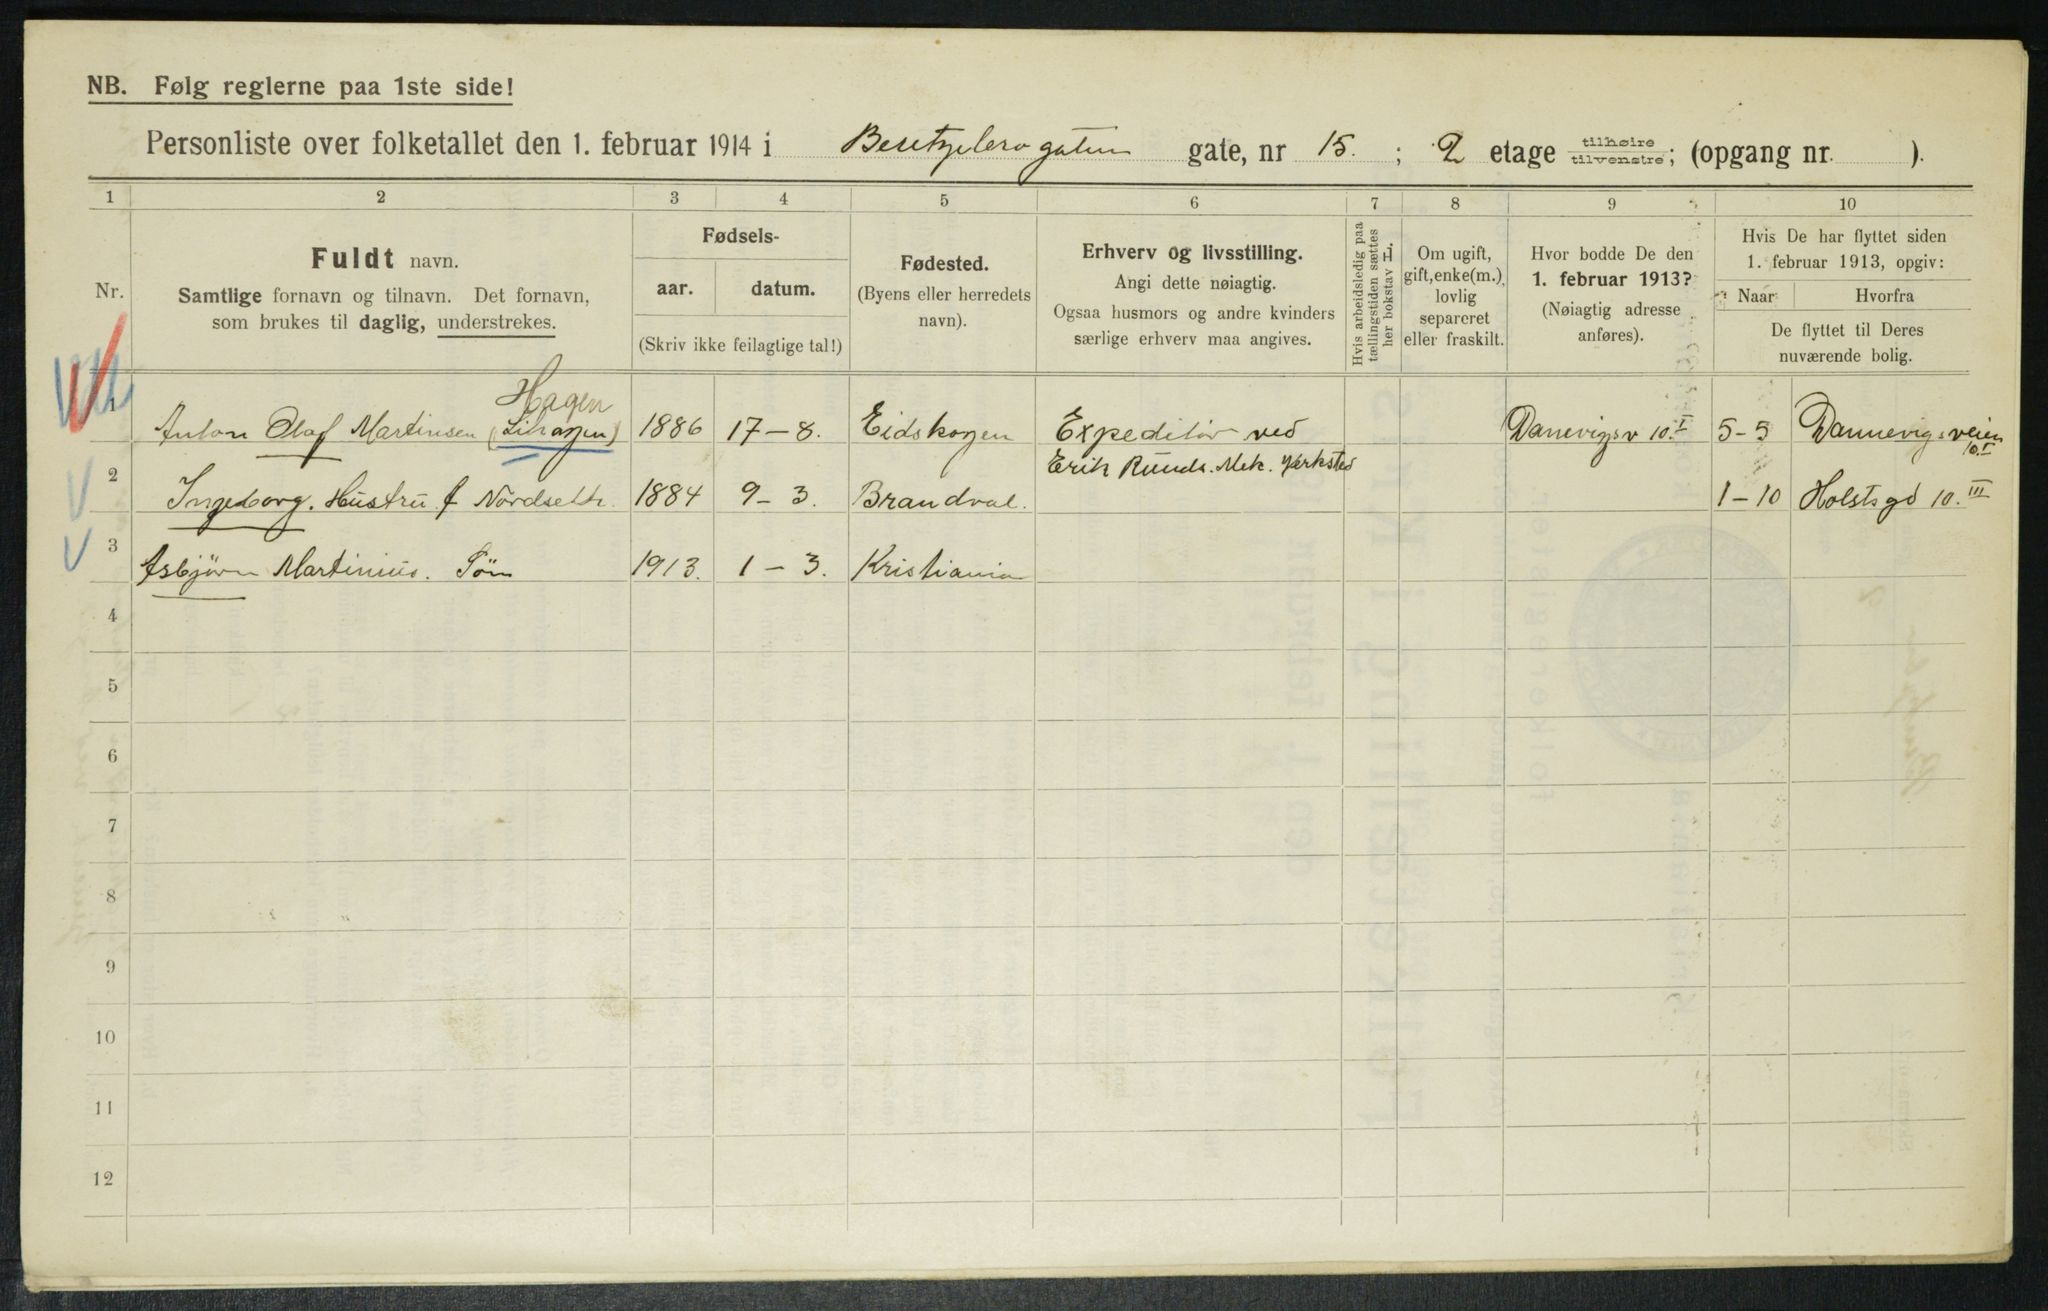 NB. Følg reglerne paa 1ste side!
Personliste over folketallet den 1. februar 1914 i Bentzelsro gaten gate, nr 15. ; 2 etage tilhøire tilvenstre; (opgang nr. ).
1 2 3 4 5 6 7 8 9 10
Nr.
Fuldt navn.
Samtlige fornavn og tilnavn. Det fornavn,
som brukes til daglig, understrekes.
Fødsels-
aar. datum.
(Skriv ikke feilagtige tal!)
Fødested.
(Byens eller herredets
navn).
Erhverv og livsstilling.
Angi dette nøiagtig.
Ogsaa husmors og andre kvinders
særlige erhverv maa angives.
Hvis arbeidsledig paa
tællingstiden sættes
her bokstav L.
Om ugift,
gift, enke(m.),
lovlig
separeret
eller fraskilt.
Hvor bodde De den
1. februar 1913?
(Nøiagtig adresse
anføres).
Hvis De har flyttet siden
1. februar 1913, opgiv:
Naar Hvorfra
De flyttet til Deres
nuværende bolig.
Hagen
1 Anton Olaf Martinsen (Lihagen) 1886 17-8. Eidskogen Expeditør ved Danevigsv 10.I 5-5 Dannevigsveien
10.I
Erik Ruuds. Mek. Verksted
2 Ingeborg. Hustru f Nordseth. 1884 9-3. Brandval. 1-10 Holstsgd 10.III
3 Asbjørn Martinius. Søn 1913. 1-3. Kristiania
4
5
6
7
8
9
10
11
12